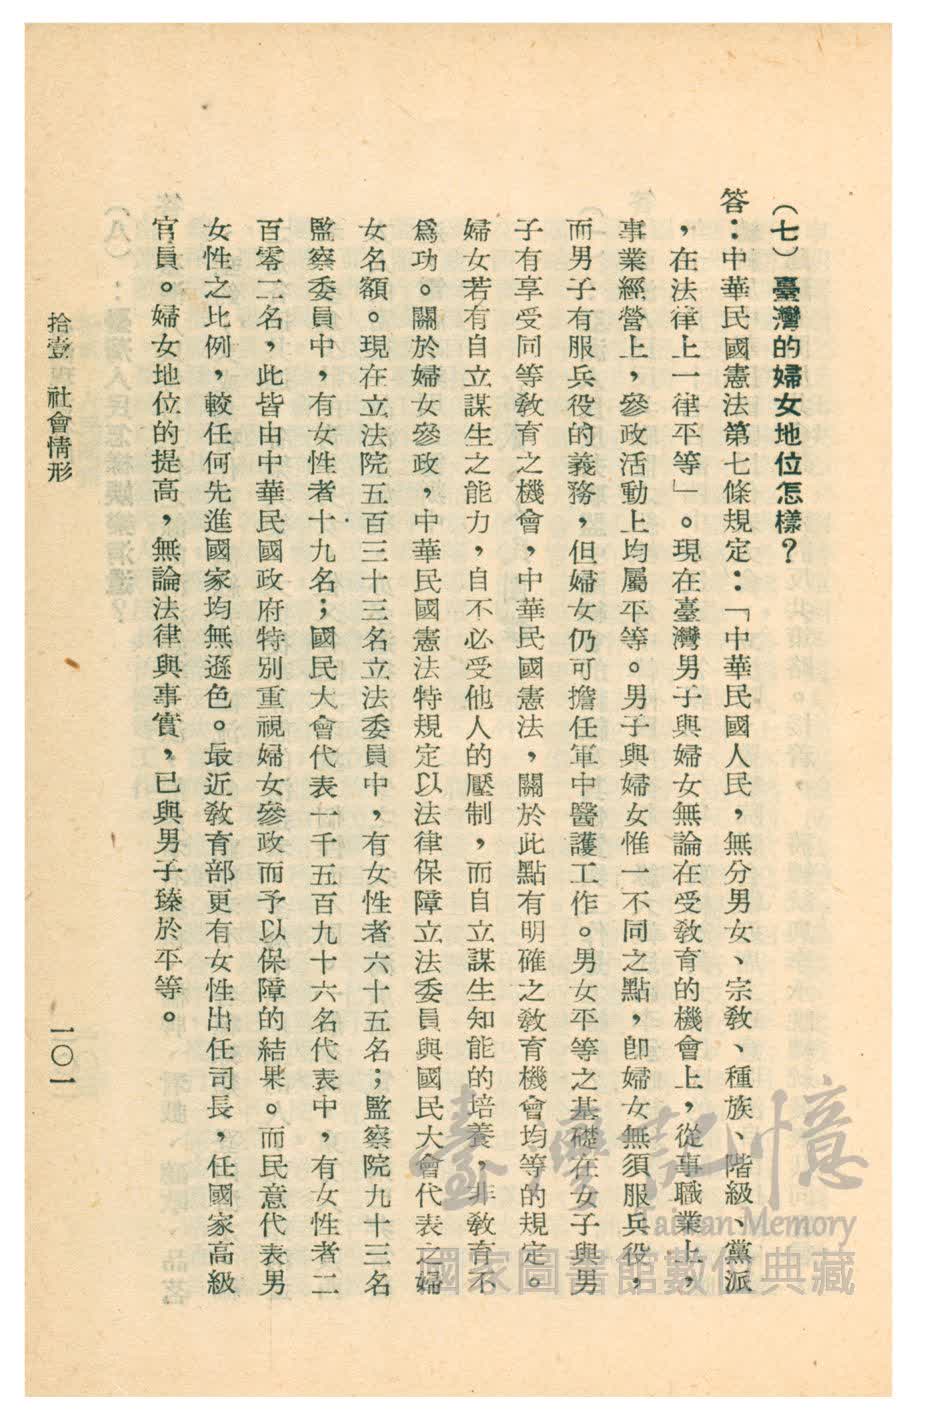 (七)臺灣的婦女地位怎樣？
答：中華民國憲法第七條規定：「中華民國人民，無分男女、宗教、種族、階級、黨派
，在法律上一律平等」。現在臺灣男子與婦女無論在受教育的機會上，從事職業上，
事業經營上，參政活動上均屬平等。男子與婦女惟一不同之點，卽婦女無須服兵役，
而男子有服兵役的義務，但婦女仍可擔任軍中醫護工作。男女平等之基礎在女子與男
子有享受同等教育之機會，中華民國憲法，關於此點有明確之教育機會均等的規定。
婦女若有自立謀生之能力，自不必受他人的壓制，而自立謀生知能的培養，非教育不
爲功。關於婦女參政，中華民國憲法特規定以法律保障立法委員與國民大會代表之婦
女名額。現在立法院五百三十三名立法委員中，有女性者六十五名；監察院九十三名
監察委員中，有女性者十九名；國民大會代表一千五百九十六名代表中，有女性者二
百零二名，此皆由中華民國政府特別重視婦女參政而予以保障的結果。而民意代表男
女性之比例，較任何先進國家均無遜色。最近教育部更有女性出任司長，任國家高級
官員。婦女地位的提高，無論法律與事實，已與男子臻於平等。
拾壹 社會情形
一〇一
臺灣記憶
Taiwan Memory
國家圖書館數位典藏